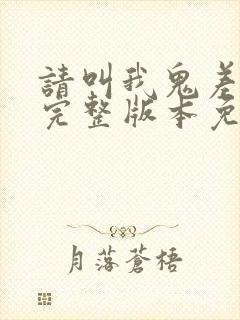 請叫我鬼差
完整版本免
月落蒼梧